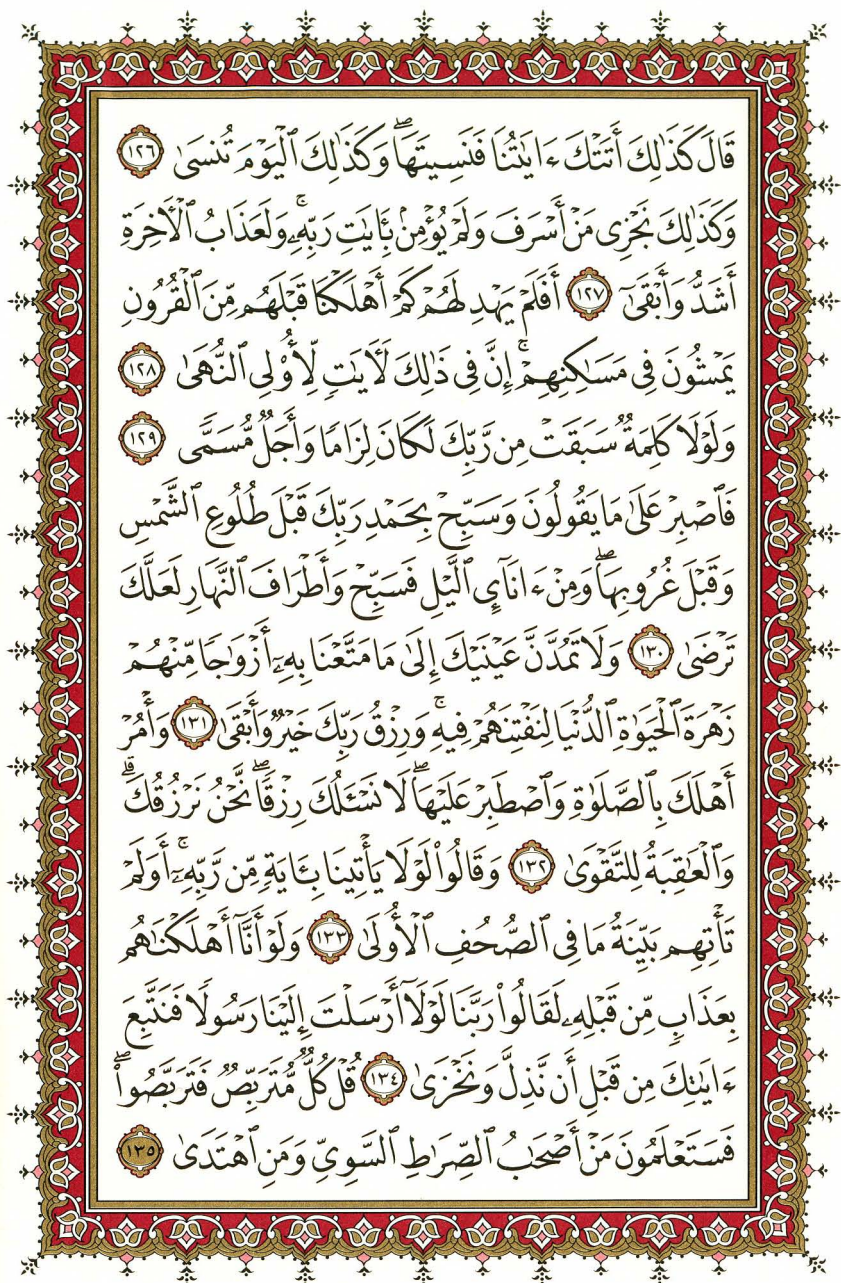 قَالَ كَذَٰلِكَ أَتَتْكَ ءَايَٰتُنَا فَنَسِيتَهَاۖ وَكَذَٰلِكَ ٱلْيَوْمَ تُنسَىٰ ١٢٦
وَكَذَٰلِكَ نَجْزِى مَنْ أَسْرَفَ وَلَمْ يُؤْمِنۢ بِـَٔايَٰتِ رَبِّهِۦۚ وَلَعَذَابُ ٱلْأَخِرَةِ
أَشَدُّ وَأَبْقَىٰٓ ١٢٧ أَفَلَمْ يَهْدِ لَهُمْ كَمْ أَهْلَكْنَا قَبْلَهُم مِّنَ ٱلْقُرُونِ
يَمْشُونَ فِى مَسَٰكِنِهِمْۚ إِنَّ فِى ذَٰلِكَ لَأٓيَٰتٍ لِّأُو۟لِى ٱلنُّهَىٰ ١٢٨
وَلَوْلَا كَلِمَةٌ سَبَقَتْ مِن رَّبِّكَ لَكَانَ لِزَامًا وَأَجَلٌ مُّسَمًّى ١٢٩
فَٱصْبِرْ عَلَىٰ مَا يَقُولُونَ وَسَبِّحْ بِحَمْدِ رَبِّكَ قَبْلَ طُلُوعِ ٱلشَّمْسِ
وَقَبْلَ غُرُوبِهَاۖ وَمِنْ ءَانَآئِ ٱلَّيْلِ فَسَبِّحْ وَأَطْرَافَ ٱلنَّهَارِ لَعَلَّكَ
تَرْضَىٰ ١٣٠ وَلَا تَمُدَّنَّ عَيْنَيْكَ إِلَىٰ مَا مَتَّعْنَا بِهِۦٓ أَزْوَٰجًا مِّنْهُمْ
زَهْرَةَ ٱلْحَيَوٰةِ ٱلدُّنْيَا لِنَفْتِنَهُمْ فِيهِۚ وَرِزْقُ رَبِّكَ خَيْرٌ وَأَبْقَىٰ ١٣١ وَأْمُرْ
أَهْلَكَ بِٱلصَّلَوٰةِ وَٱصْطَبِرْ عَلَيْهَاۖ لَا نَسْـَٔلُكَ رِزْقًاۖ نَّحْنُ نَرْزُقُكَۗ
وَٱلْعَٰقِبَةُ لِلتَّقْوَىٰ ١٣٢ وَقَالُوا۟ لَوْلَا يَأْتِينَا بِـَٔايَةٍ مِّن رَّبِّهِۦٓۚ أَوَلَمْ
تَأْتِهِم بَيِّنَةُ مَا فِى ٱلصُّحُفِ ٱلْأُولَىٰ ١٣٣ وَلَوْ أَنَّآ أَهْلَكْنَٰهُم
بِعَذَابٍ مِّن قَبْلِهِۦ لَقَالُوا۟ رَبَّنَا لَوْلَآ أَرْسَلْتَ إِلَيْنَا رَسُولًا فَنَتَّبِعَ
ءَايَٰتِكَ مِن قَبْلِ أَن نَّذِلَّ وَنَخْزَىٰ ١٣٤ قُلْ كُلٌّ مُّتَرَبِّصٌ فَتَرَبَّصُوا۟ۖ
فَسَتَعْلَمُونَ مَنْ أَصْحَٰبُ ٱلصِّرَٰطِ ٱلسَّوِىِّ وَمَنِ ٱهْتَدَىٰ ١٣٥